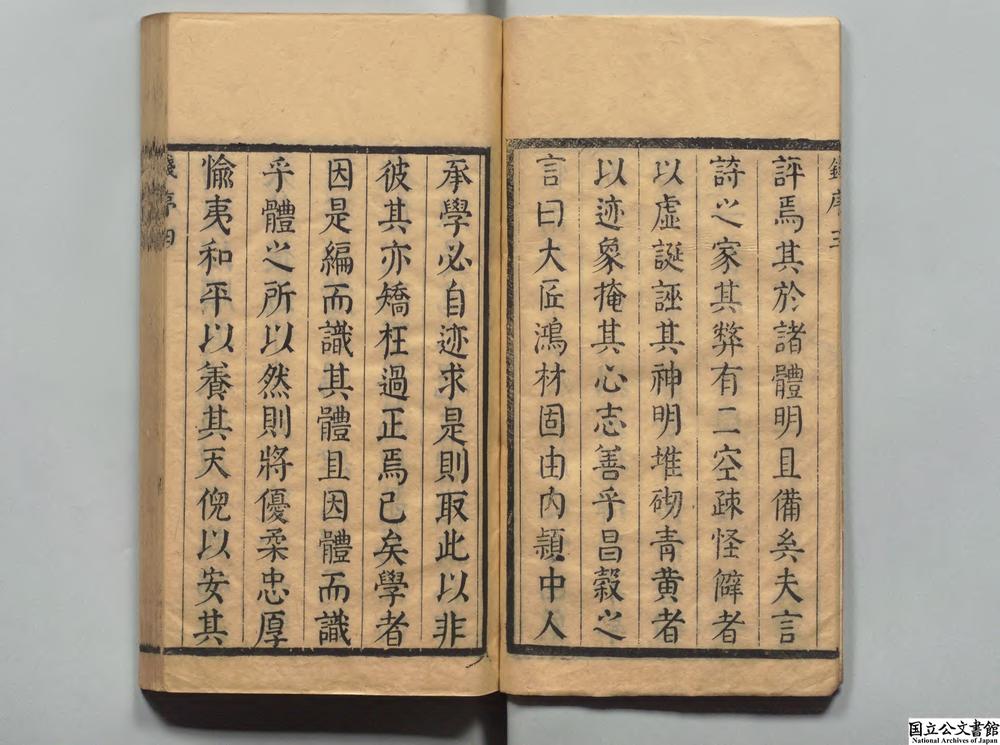 錢序三
評焉其於諸體明且備矣夫言
詩之家其弊有二空疎怪僻者
以虛誕誣其神明堆砌青黃者
以迹象掩其心志善乎昌穀之
言曰大匠鴻材固由內頴中人
承學必自迹求是則取此以非
彼其亦矯枉過正焉已矣學者
因是編而識其體且因體而識
乎體之所以然則將優柔忠厚
愉夷和平以養其天倪以安其
錢序四
国立公文書館
National Archives of Japan